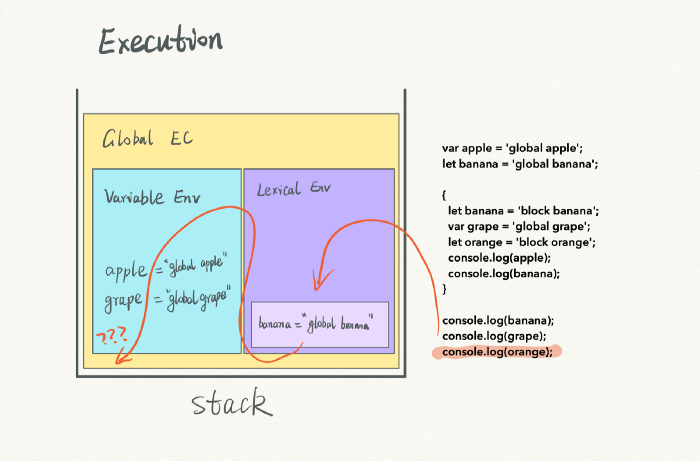 Execution
Global EC
Variable Env
Lexical Env
apple = "global apple"
grape = "global grape"
???
banana = "global banana"
stack
var apple = 'global apple';
let banana = 'global banana';
{
let banana = 'block banana';
var grape = 'global grape';
let orange = 'block orange';
console.log(apple);
console.log(banana);
}
console.log(banana);
console.log(grape);
console.log(orange);